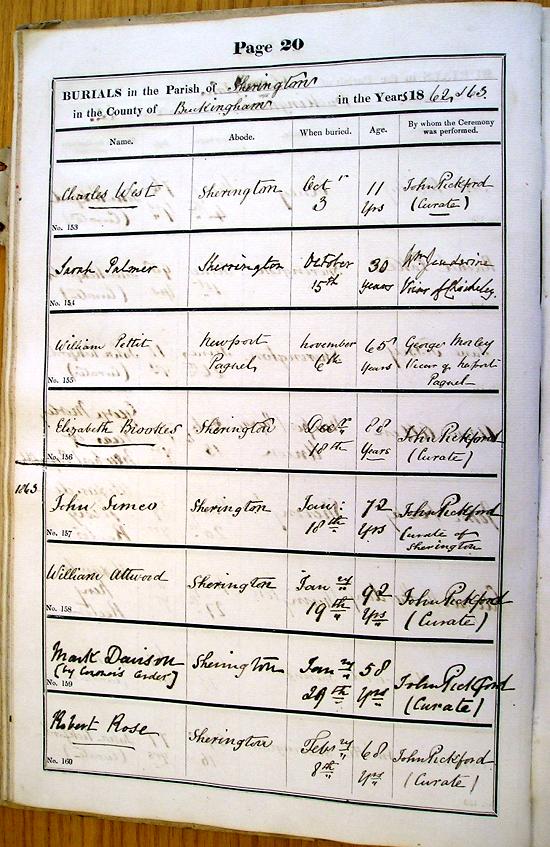 Page 20
BURIALS in the Parish of Sherington
in the County of Buckingham in the Years 1862, 63
Name. Abode. When buried. Age. By whom the Ceremony was performed.
Charles West Sherington Oct r 3 11 yrs John Pickford (Curate)
No. 153
Sarah Palmer Sherrington October 15th 30 years Wm Vicar of
No. 154
William Pettit Newport Pagnel November 6th 65 Years George Morley Vicar of Newport Pagnel
No. 155
Elizabeth Brookes Sherington Decr 18th 88 Years John Pickford (Curate)
No. 156
1863
John Simco Sherington Jan: 18th 72 yrs John Pickford Curate of Sherington
No. 157
William Attwood Sherington Jan ry 19th 92 yrs John Pickford (Curate)
No. 158
Mark Davison Sherington Jan ry 29th 58 yrs John Pickford (Curate)
(by Coroner's Order)
No. 159
Robert Rose Sherington Feb ry 8th 68 yrs John Pickford (Curate)
No. 160